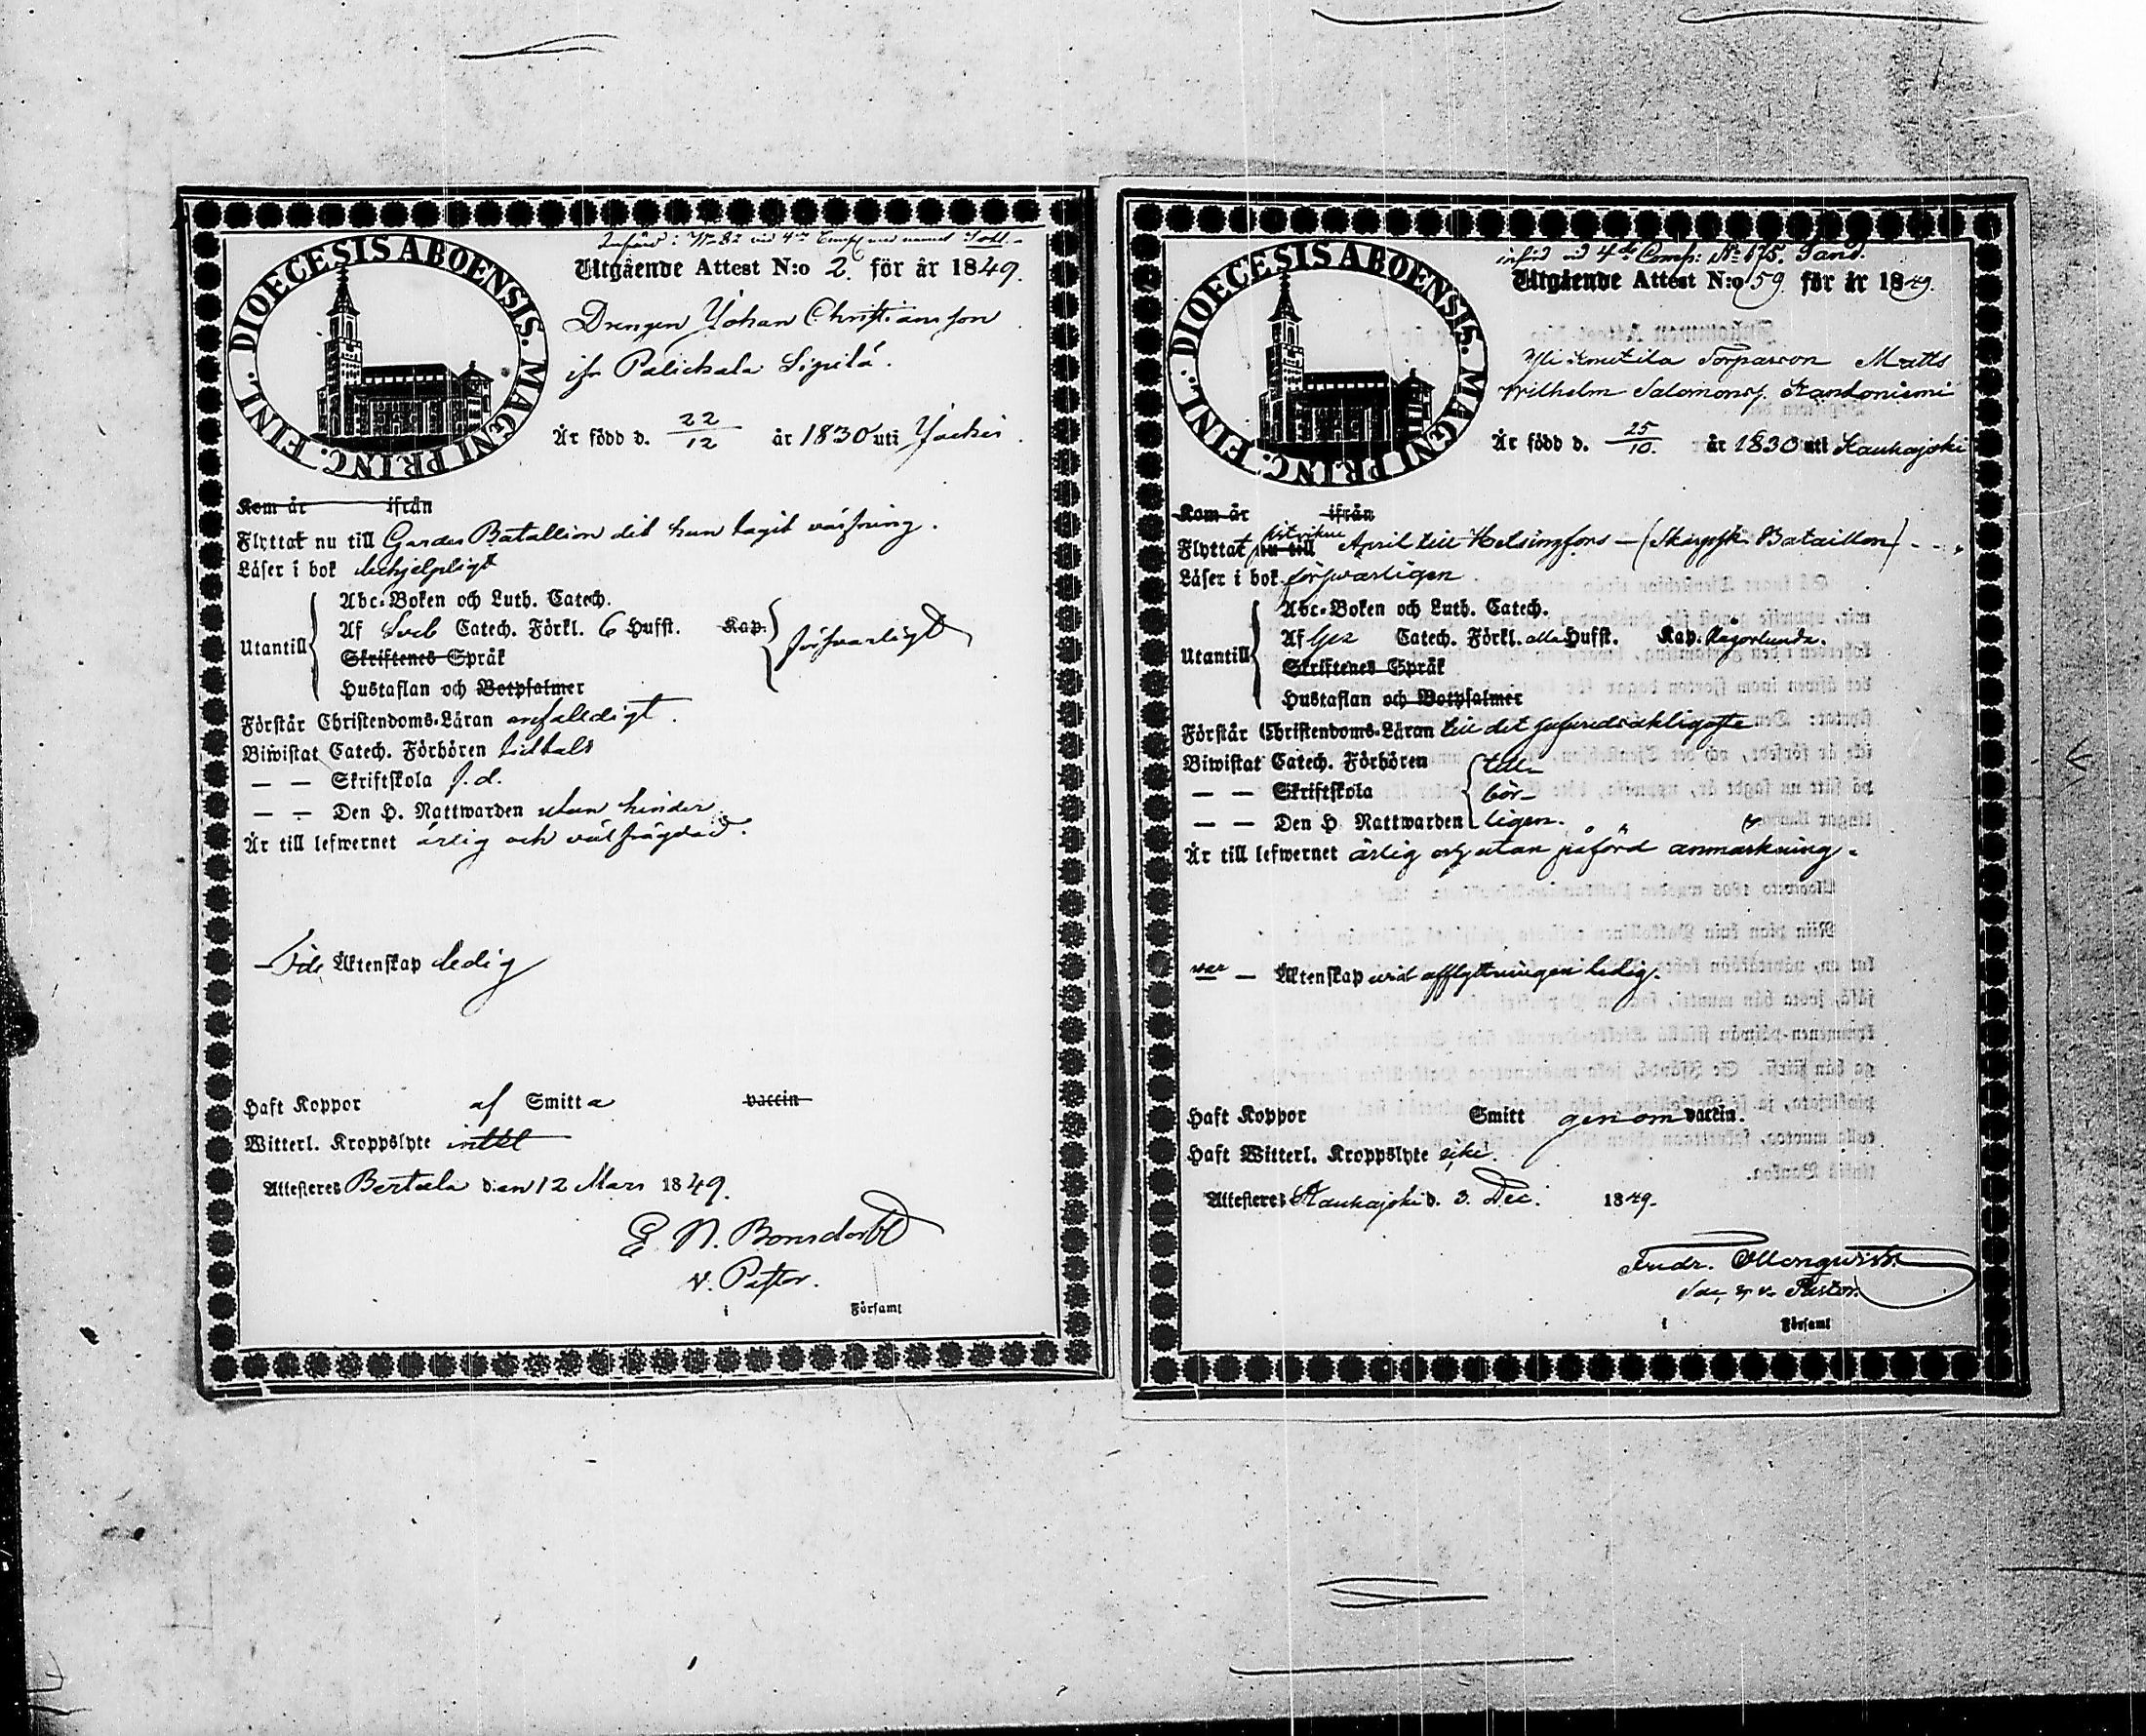 DIOECESIS ABOENSIS. MAGNI PRINC. FINL.
Utgående Attest N:o 2. för år 1849.
Drengen Johan Christiansson
ifr Palickala Sipilä.
Är född d. 22/12 år 1830 uti Jockis.
Kom år ifrån
Flyttat nu till Gardes Batallion dit han tagit värfning.
Läser i bok behjelpligt
Abc-Boken och Luth. Catech.
Af Sveb Catech. Förkl. 6 Hufst. Kap.
Utantill
försvarligt
Skriftenes Språk
Hustaflan och Botpsalmer
Förstår Christendoms-Läran enfaldigt.
Biwistat Catech. Förhören
— — Skriftskola s. d.
— — Den H. Nattwarden utan hinder
Är till lefwernet ärlig och välfrägdad.
Äktenskap ledig
Haft Koppor af Smitta vaccin
Witterl. Kroppslyte intet
Attesteres Bertula den 12 Mars 1849.
E. N. Bonsdorff
v. Pastor.
i Församl
DIOECESIS ABOENSIS. MAGNI PRINC. FINL.
införd vid 4de Comp: No 175. Sand.
Utgående Attest N:o 59. för år 1849.
Torparson Matts
Wilhelm Salomonss.
Är född d. 25/10. år 1830 uti Kauhajoki
Kom år ifrån
Flyttat nu till April till Helsingfors — (Skarpsk. Bataillon)
Läser i bok försvarligen
Abc-Boken och Luth. Catech.
Af Catech. Förkl. alla Hufst. Kap. någorlunda.
Utantill
Skriftenes Språk
Hustaflan och Botpsalmer
Förstår Christendoms-Läran till det hufvudsakligaste
Biwistat Catech. Förhören till-
— — Skriftskola bör-
— — Den H. Nattwarden ligen.
Är till lefwernet ärlig och utan påförd anmärkning.
var — Äktenskap vid afflyttningen ledig.
Haft Koppor Smitt genom vaccin.
Haft Witterl. Kroppslyte icke.
Attesteres Kauhajoki d. 3. Dec. 1849.
Fredr.
v. Pastor.
i Församl